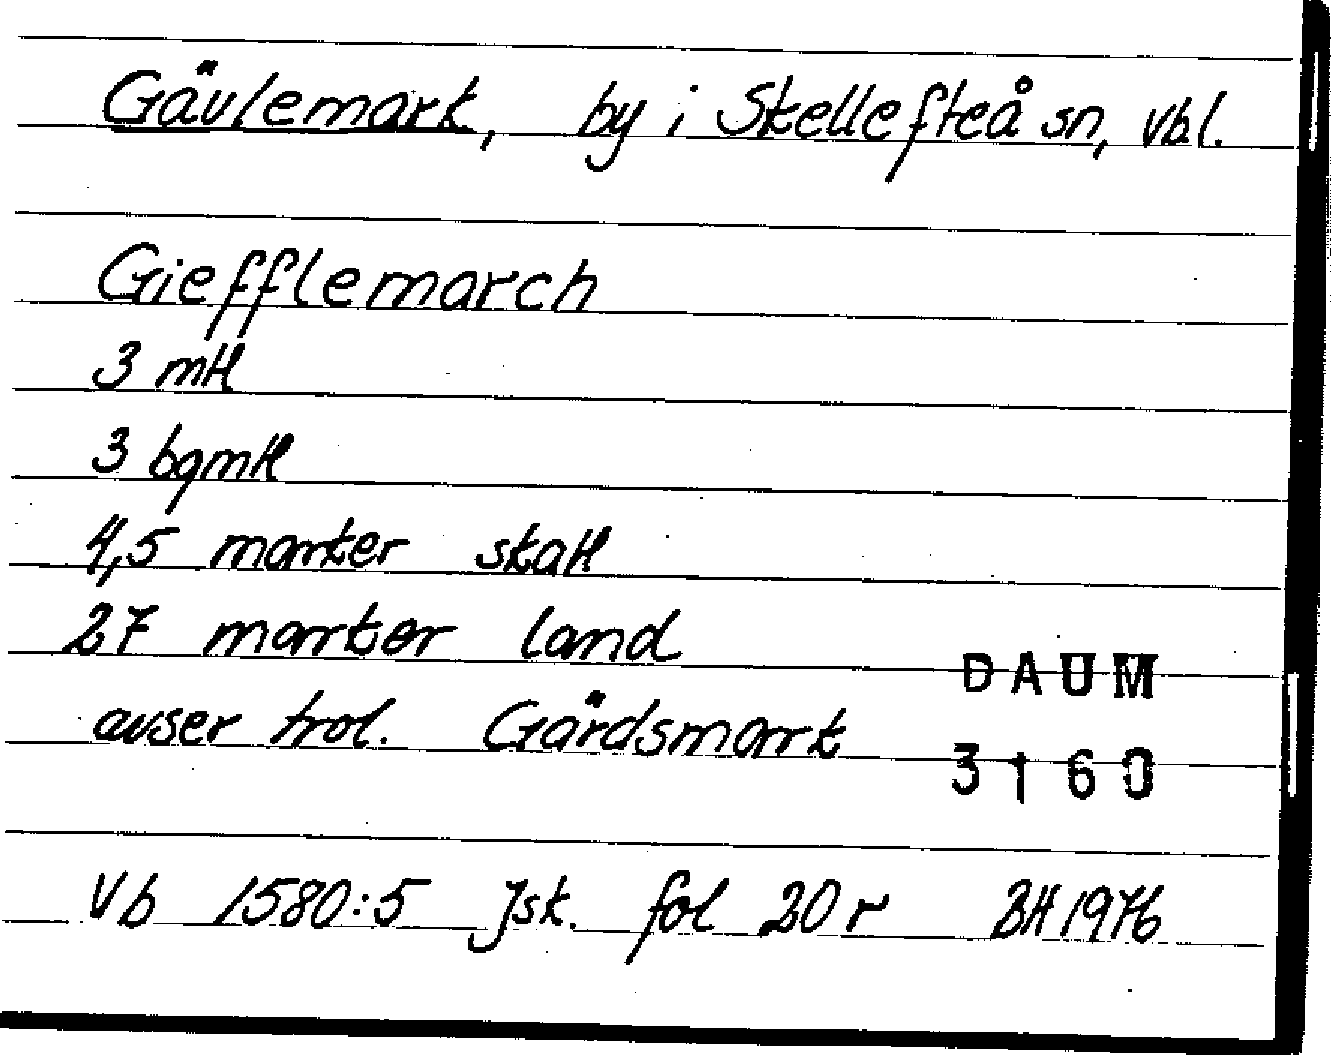 Gävlemark, by i Skellefteå sn, vbl.
Giefflemarch
3 mtl
3 bgmtl
4,5 marker skatt
27 marker land
avser trol. Gärdsmark
DAUM
3160
Vb 1580:5 Jsk. fol 20 r BH 1976